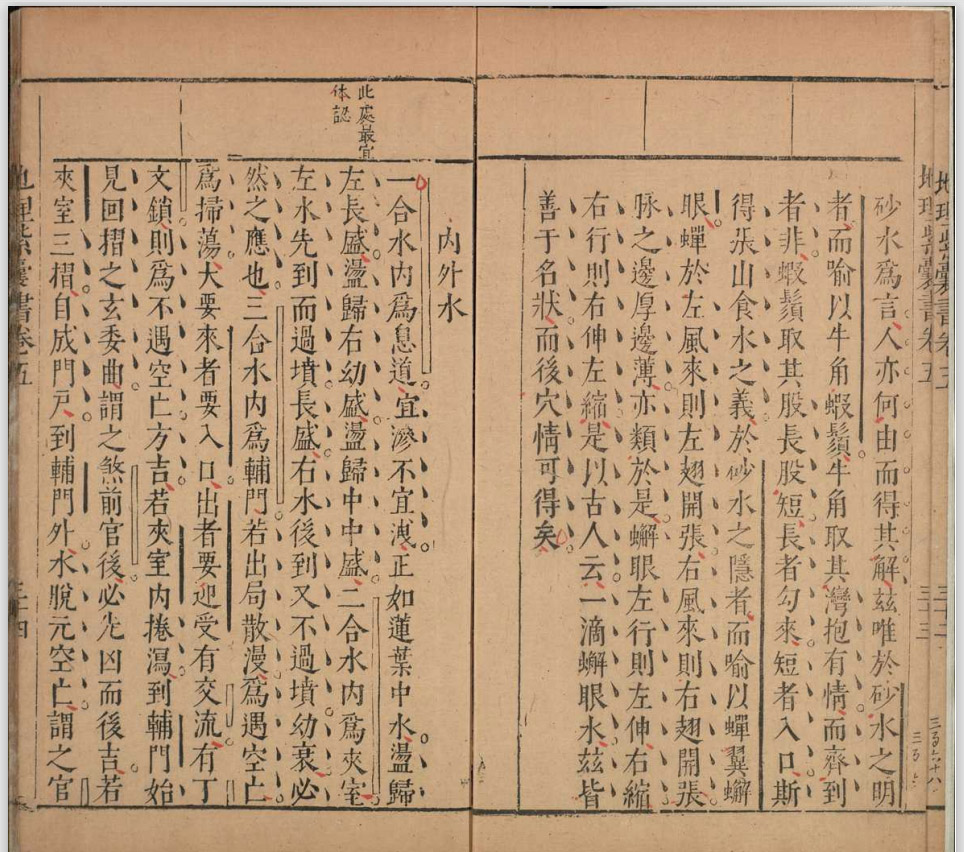 地理紫囊書卷五
三十三
砂水爲言人亦何由而得其解玆唯於砂水之明
者而喻以牛角蝦鬚牛角取其灣抱有情而齊到
者非蝦鬚取其股長股短長者勾來短者入口斯
得張山食水之義於砂水之隱者而喻以蟬翼蠏
眼蟬於左風來則左翅開張右風來則右翅開張
脉之邊厚邊薄亦類於是蠏眼左行則左伸右縮
右行則右伸左縮是以古人云一滴蠏眼水玆皆
善于名狀而後穴情可得矣
此處最宜
体認
內外水
一合水內爲息道宜滲不宜洩正如蓮葉中水盪歸
左長盛盪歸右幼盛盪歸中中盛二合水內爲夾室
左水先到而過墳長盛右水後到又不過墳幼衰必
然之應也三合水內爲輔門若出局散漫爲遇空亡
爲掃蕩大要來者要入口出者要迎受有交流有丁
文鎖則爲不遇空亡方吉若夾室內捲瀉到輔門始
見回摺之玄委曲謂之煞前官後必先凶而後吉若
夾室三摺自成門戶到輔門外水脫元空亡謂之官
地理紫囊書卷五
三十四